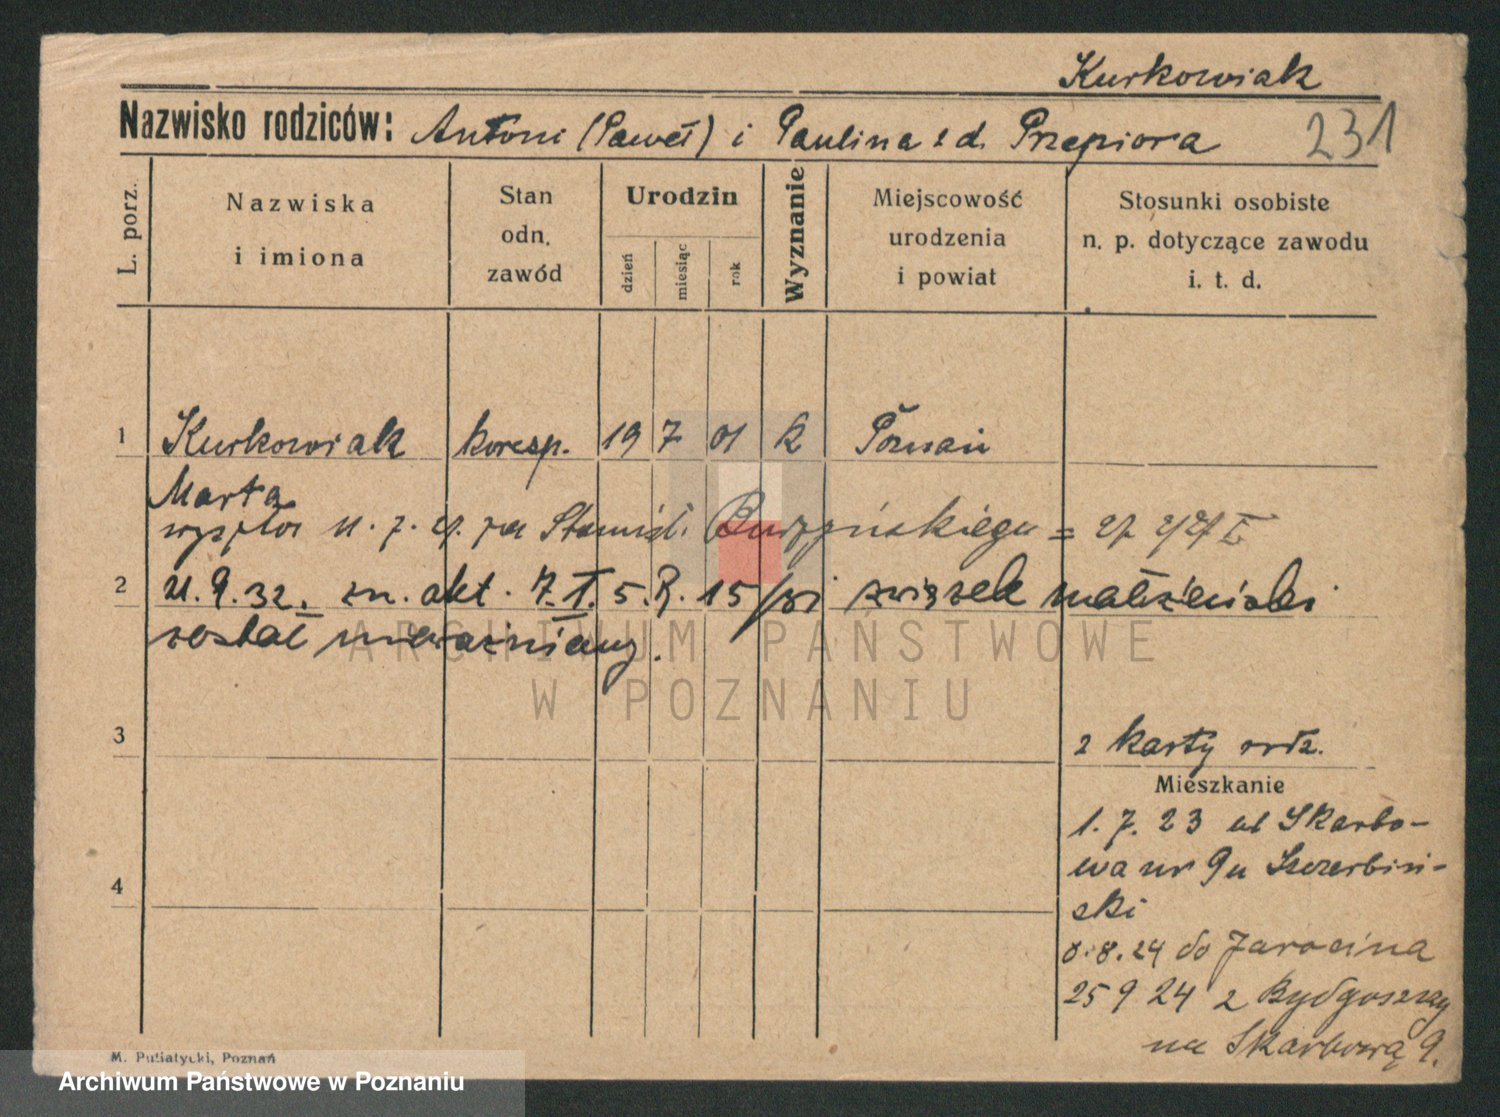 Kurkowiak
Nazwisko rodziców: Antoni (Paweł) i Paulina z d. Przepiora 231
L. porz.
Nazwiska i imiona
Stan odn. zawód
Urodzin
dzień
miesiąc
rok
Wyznanie
Miejscowość urodzenia i powiat
Stosunki osobiste n. p. dotyczące zawodu i. t. d.
1 Kurkowiak koresp. 19 7 01 k Poznań
Marta
wyszła 11. 7. za Stanisł.
2 21. 9. 32. zn. akt. 7. I. 5. R. 15/ związek małżeński
został unieważniany.
ARCHIWUM PAŃSTWOWE
W POZNANIU
3
2 karty rodz.
Mieszkanie
1. 7. 23 ul Skarbo-
wa nr 9 u Szczerbiń-
ski
4
8. 24 do Jarocina
25 9 24 z Bydgoszczy
na Skarbową 9.
M. Putiatycki, Poznań
Archiwum Państwowe w Poznaniu